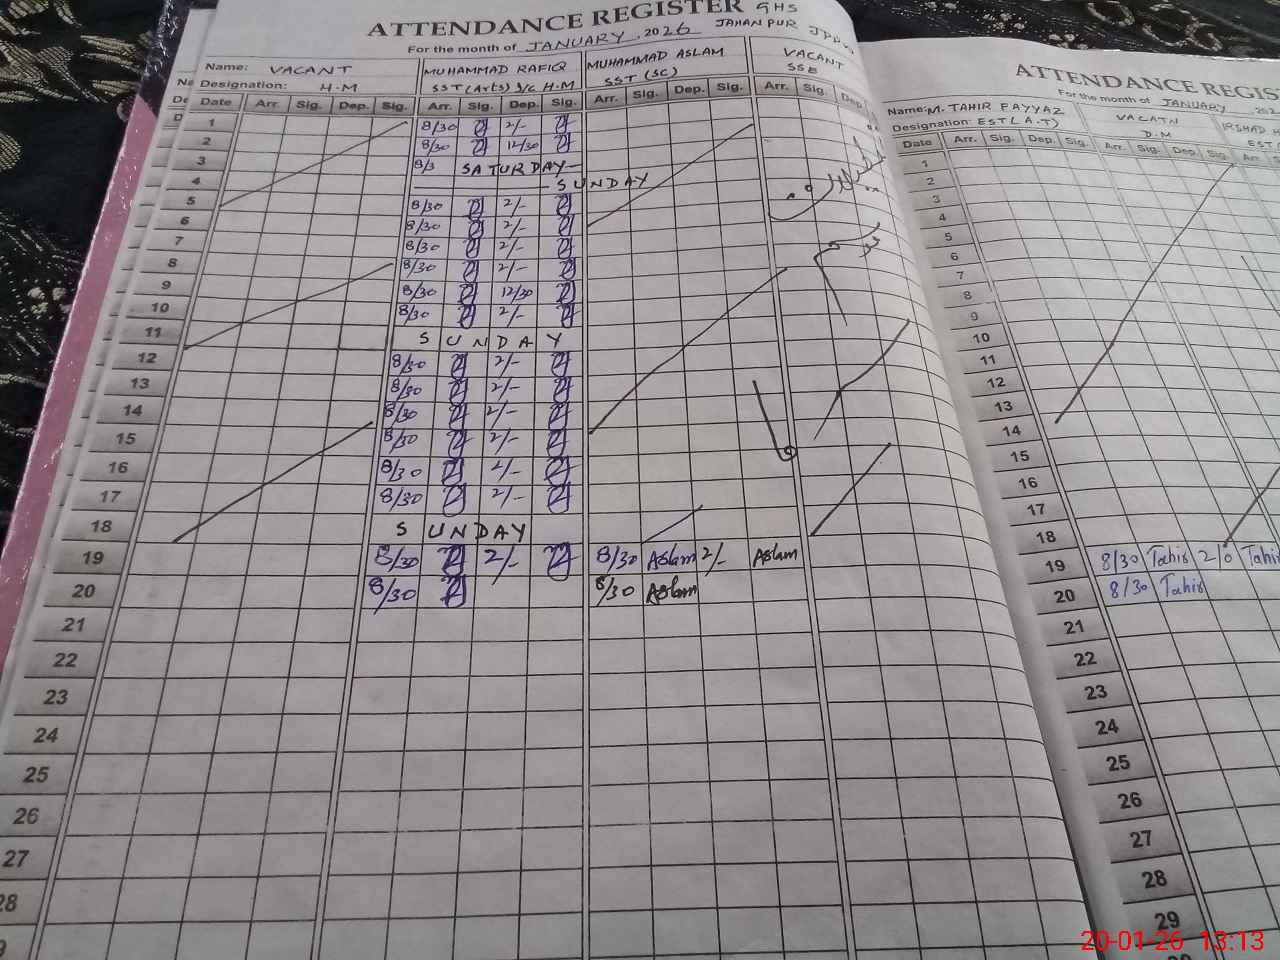 ATTENDANCE REGISTER GHS
For the month of JANUARY, 2026 JAHANPUR
Name: VACANT MUHAMMAD RAFIQ MUHAMMAD ASLAM VACANT
Designation: H.M SST (Arts) I/C H.M SST (SC) SSE
Date Arr. Sig. Dep. Sig. Arr. Sig. Dep. Sig. Arr. Sig. Dep. Sig. Arr. Sig. Dep.
1 8/30 2/-
2 8/30 12/30
3 8/3 SATURDAY
4 SUNDAY
5 8/30 2/-
6 8/30 2/-
7 8/30 2/-
8 8/30 2/-
9 8/30 12/30
10 8/30 2/-
11 SUNDAY
12 8/30 2/-
13 8/30 2/-
14 8/30 2/-
15 8/30 2/-
16 8/30 2/-
17 8/30 2/-
18 SUNDAY
19 8/30 2/- 8/30 Aslam 2/- Aslam
20 8/30 8/30 Aslam
21
22
23
24
25
26
27
28
ATTENDANCE REGIS
For the month of JANUARY
Name: M. TAHIR FAYYAZ VACATN
Designation: EST (A.T) D.M
Date Arr. Sig. Dep. Sig. Arr. Sig. Dep. Sig. Arr.
1
2
3
4
5
6
7
8
9
10
11
12
13
14
15
16
17
18
19 8/30 Tahir 2/0 Tahir
20 8/30 Tahir
21
22
23
24
25
26
27
28
29
20-01-26 13:13